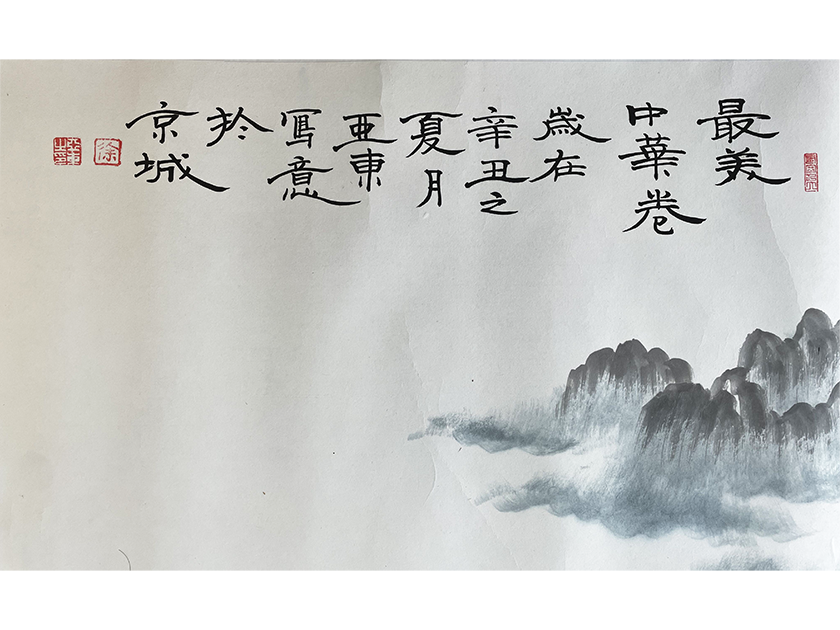 最美
中華卷
歲在
辛丑之
夏月
亞東
寫意
於
京城
徐